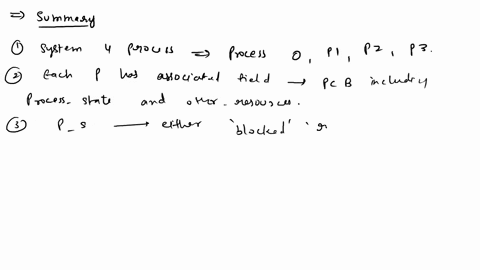 ⇒ Summary
① System 4 process ⇒ Process 0, P1, P2, P3.
② Each P has associated field → PCB including
Process_state and other_resources.
③ P_s → either 'blocked' '